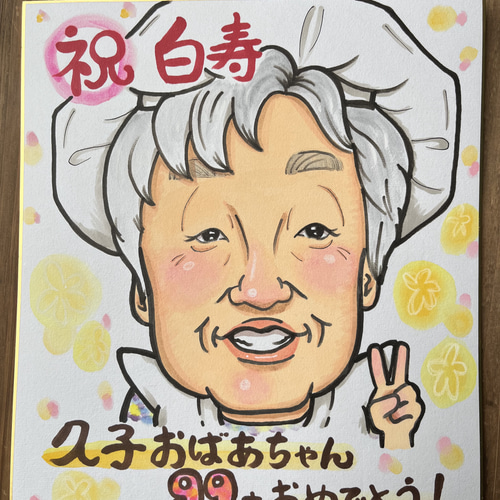 祝 白寿
久子おばあちゃん
99才おめでとう!